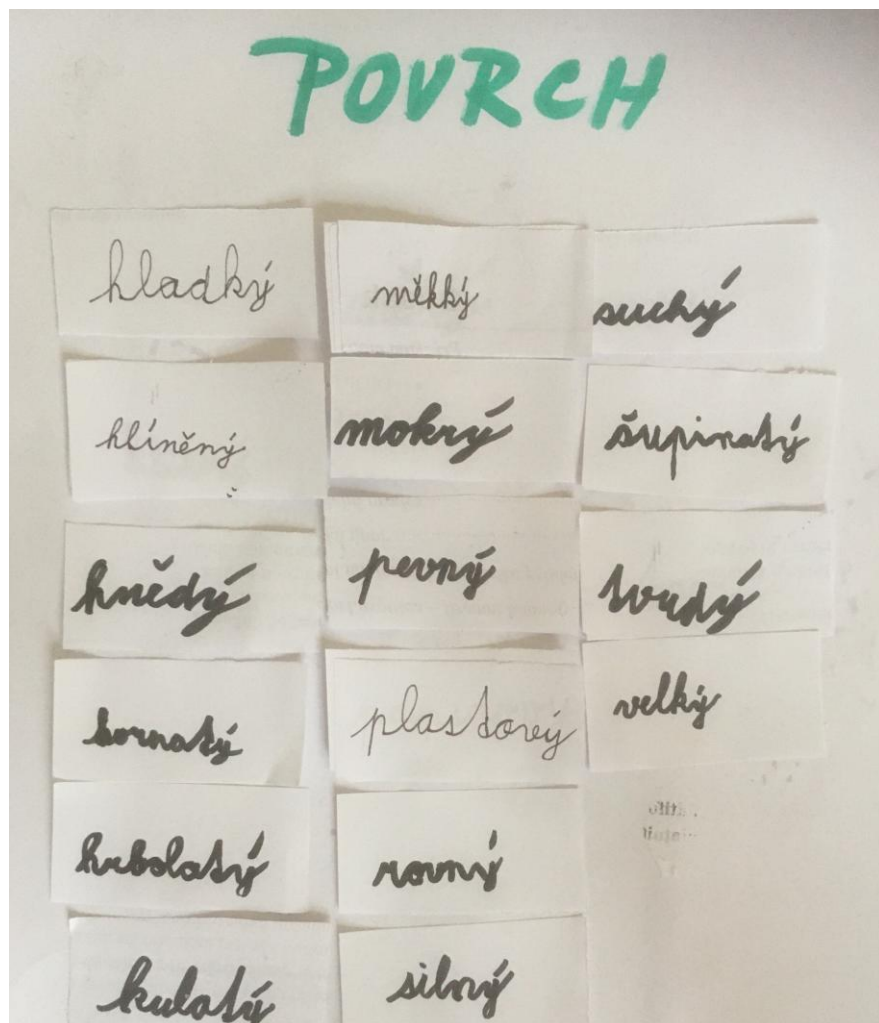 POVRCH
hladký
hlíněný
hnědý
hornatý
hrbolatý
kulatý
měkký
mokrý
pevný
plastový
rovný
silný
suchý
šupinatý
tvrdý
velký